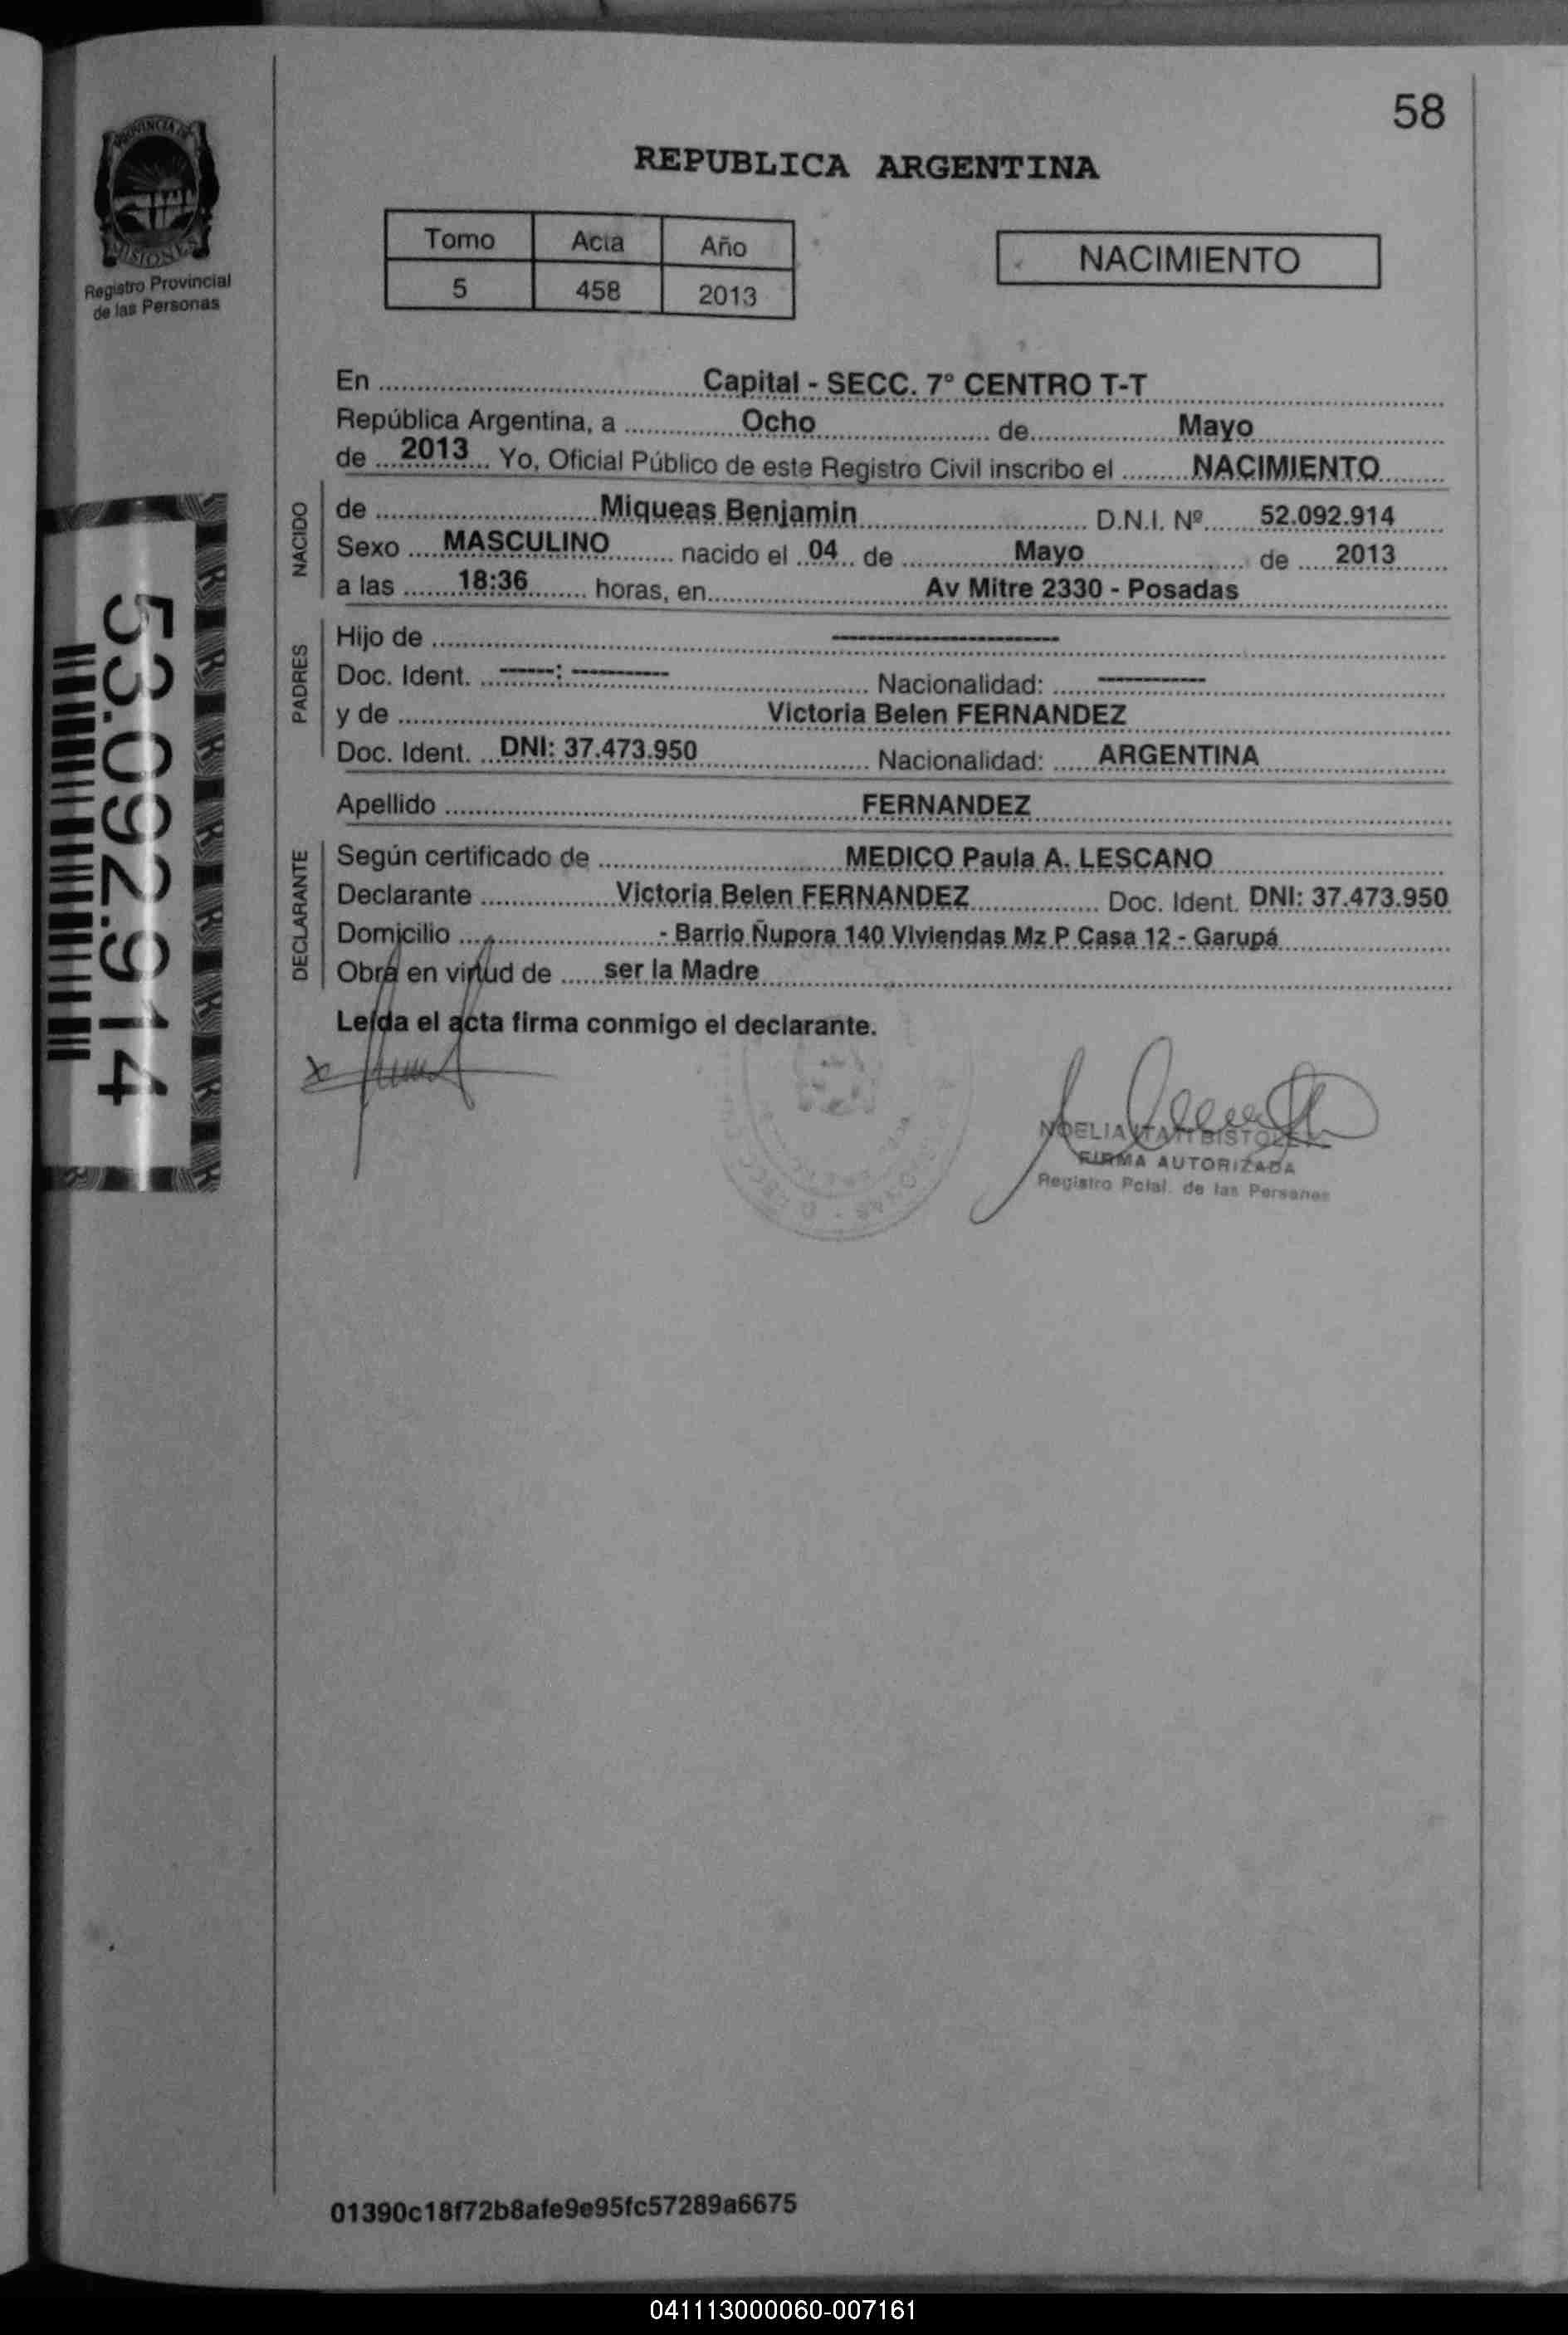 58
PROVINCIA DE
MISIONES
Registro Provincial
de las Personas
REPUBLICA ARGENTINA
Tomo Acta Año
5 458 2013
NACIMIENTO
En Capital - SECC. 7° CENTRO T-T
República Argentina, a Ocho de Mayo
de 2013 Yo, Oficial Público de este Registro Civil inscribo el NACIMIENTO
NACIDO
de Miqueas Benjamin D.N.I. Nº 52.092.914
Sexo MASCULINO nacido el 04 de Mayo de 2013
a las 18:36 horas, en Av Mitre 2330 - Posadas
PADRES
Hijo de --------------------
Doc. Ident. ------: ---------- Nacionalidad: -----------
y de Victoria Belen FERNANDEZ
Doc. Ident. DNI: 37.473.950 Nacionalidad: ARGENTINA
Apellido FERNANDEZ
DECLARANTE
Según certificado de MEDICO Paula A. LESCANO
Declarante Victoria Belen FERNANDEZ Doc. Ident. DNI: 37.473.950
Domicilio - Barrio Ñupora 140 Viviendas Mz P Casa 12 - Garupá
Obra en virtud de ser la Madre
Leída el acta firma conmigo el declarante.
NOELIA
FIRMA AUTORIZADA
Registro Pcial. de las Personas
53.092.914
01390c18f72b8afe9e95fc57289a6675
041113000060-007161